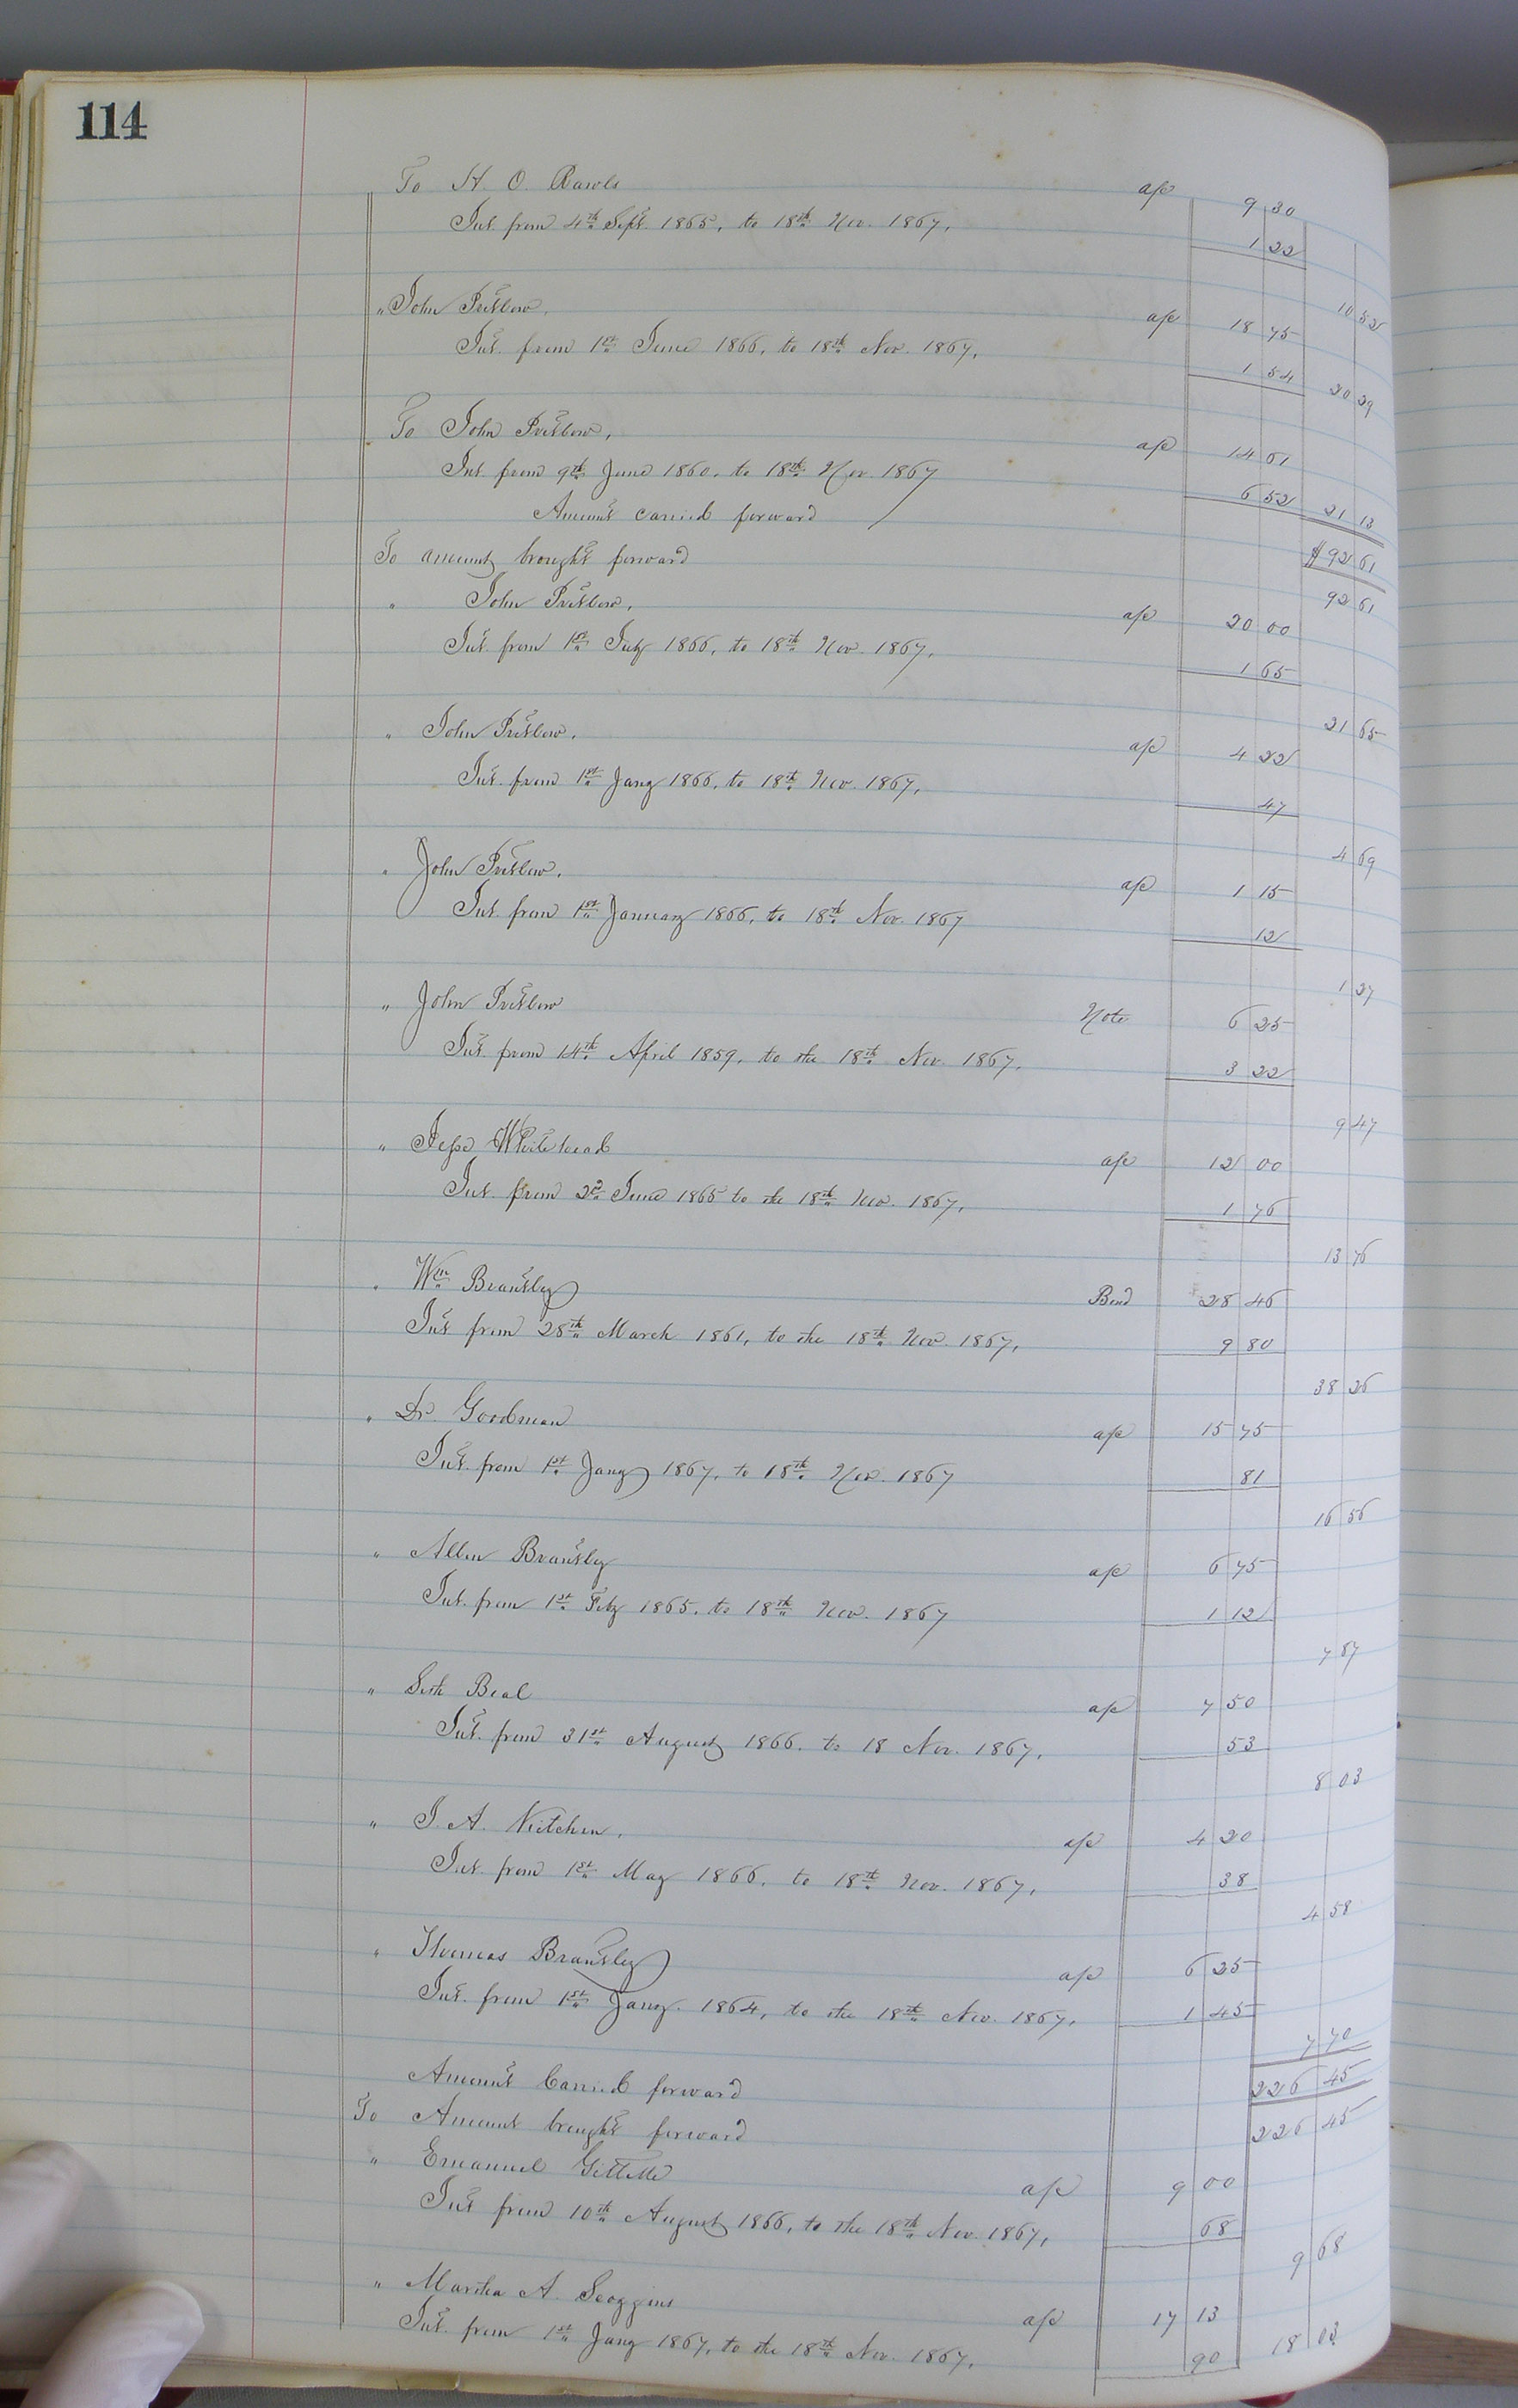 114
To H. O. Rawls a/c 9 30
Int. from 4th Sept. 1865, to 18th Nov. 1867, 1 22
10 52
" John Pretlow, a/c 18 75
Int. from 1st June 1866, to 18th Nov. 1867, 1 54
20 29
To John Pretlow, a/c 14 61
Int. from 9th June 1860, to 18th Nov. 1867 6 52 21 13
Amount carried forward $92 61
To amount brought forward 92 61
" John Pretlow, a/c 20 00
Int. from 1st July 1866, to 18th Nov. 1867, 1 65
21 65
" John Pretlow, a/c 4 22
Int. from 1st Jany 1866, to 18th Nov. 1867, 47
4 69
" John Pretlow, a/c 1 15
Int. from 1st January 1866, to 18th Nov. 1867 12
1 27
" John Pretlow Note 6 25
Int. from 14th April 1859, to the 18th Nov. 1867, 3 22
9 47
" Jesse Whitehead a/c 12 00
Int. from 2d June 1865 to the 18th Nov. 1867, 1 76
13 76
" Wm Brantley Bond 28 46
Int from 28th March 1861, to the 18th Nov. 1867, 9 80
38 26
" Dr. Goodman a/c 15 75
Int. from 1st Jany 1867, to 18th Nov. 1867 81
16 56
" Allen Brantley a/c 6 75
Int. from 1st Feby 1865, to 18th Nov. 1867 1 12
7 87
" Seth Beal a/c 7 50
Int. from 31st August 1866. to 18 Nov. 1867, 53
8 03
" J. A. Kitchen, a/c 4 20
Int. from 1st May 1866, to 18th Nov. 1867, 38
4 58
" Thomas Brantley a/c 6 25
Int. from 1st Jany. 1864, to the 18th Nov. 1867, 1 45
7 70
Amount Carried forward 226 45
To Amount brought forward 226 45
" Emanuel a/c 9 00
Int from 10th August 1866, to the 18th Nov. 1867, 68
9 68
" Martha A. Scoggins a/c 17 13
Int. from 1st Jany 1867, to the 18th Nov. 1867, 90 18 03